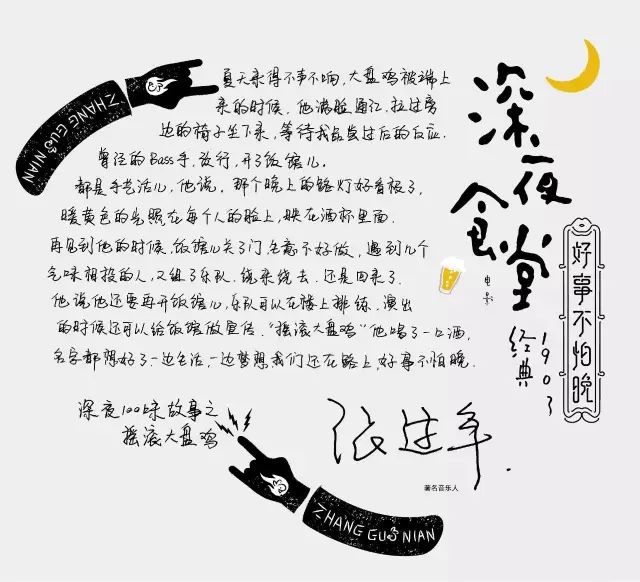 夏天来得不声不响，大盘鸡被端上
来的时候，他满脸通红，拉过旁
边的椅子坐下来，等待我品尝过后的反应．
曾经的Bass手，改行，开了饭馆儿．
都是手艺活儿，他说，那个晚上的路灯好看极了，
暖黄色的光照在每个人的脸上，映在酒杯里面．
再见到他的时候，饭馆儿关了门，生意不好做，遇到几个
气味相投的人，又组了乐队．绕来绕去．还是回来了．
他说他还要再开饭馆儿，乐队可以在楼上排练．演出
的时候还可以给饭馆做宣传．“摇滚大盘鸡”他喝了一口酒，
名字都想好了．一边生活，一边梦想，我们还在路上，好事不怕晚．
深夜100味故事之
摇滚大盘鸡
张过年．
著名音乐人
深夜食堂
电影
经典1903
好事不怕晚
ZHANG GUO NIAN
ZHANG GUO NIAN